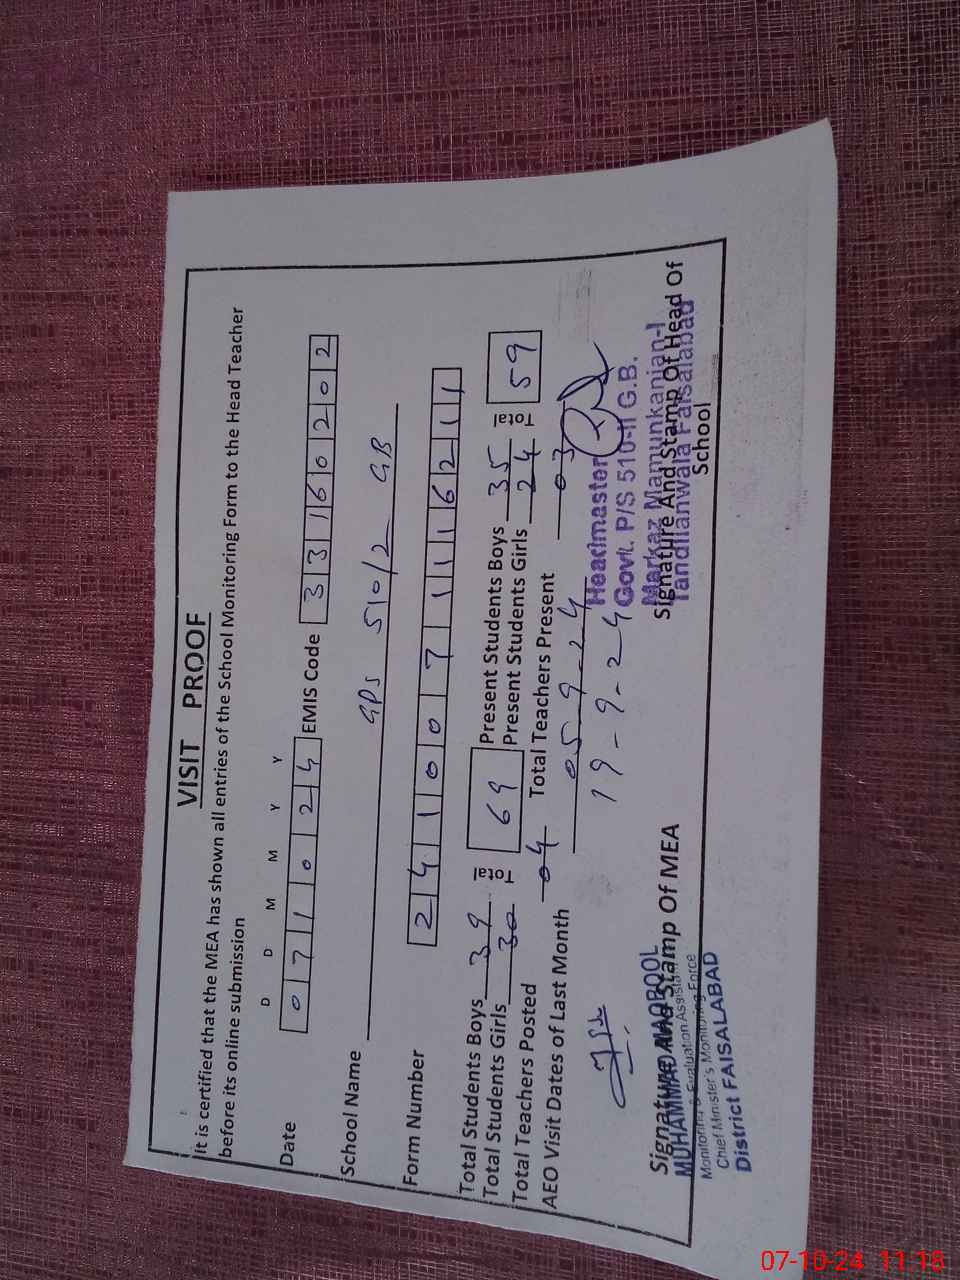 VISIT PROOF
It is certified that the MEA has shown all entries of the School Monitoring Form to the Head Teacher
before its online submission
D D M M Y Y
Date 0 7 1 0 2 4 EMIS Code 3 3 1 6 0 2 0 2
School Name GPS 510/2 GB
Form Number 2 4 1 0 0 7 1 1 1 6 2 1 1
Total Students Boys 39 Total 69 Present Students Boys 35 Total 59
Total Students Girls 30 Present Students Girls 24
Total Teachers Posted 04 Total Teachers Present 03
AEO Visit Dates of Last Month 05-9-24
19-9-24
Headmaster
Govt. P/S 510-II G.B.
Markaz Mamunkanjan-I
Tandlianwala Faisalabad
Signature And Stamp Of MEA Signature And Stamp Of Head Of
School
MUHAMMAD MAQBOOL
Monitoring & Evaluation Assistant
Chief Minister's Monitoring Force
District FAISALABAD
07-10-24 11:18